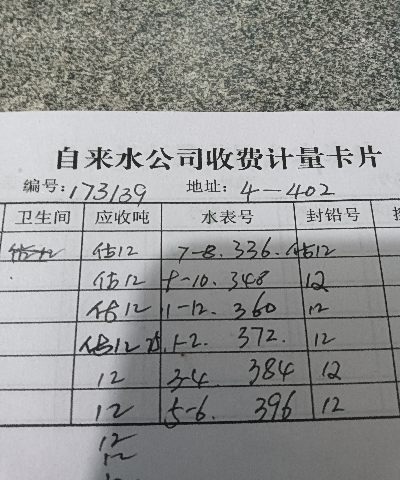 自来水公司收费计量卡片
编号:173139 地址: 4-402
卫生间 应收吨 水表号 封铅号
估12 7-8. 336. 估12
估12 9-10. 348 12
估12 11-12. 360 12
估12 1-2. 372. 12
12 3-4 384 12
12 5-6. 396 12
12
12